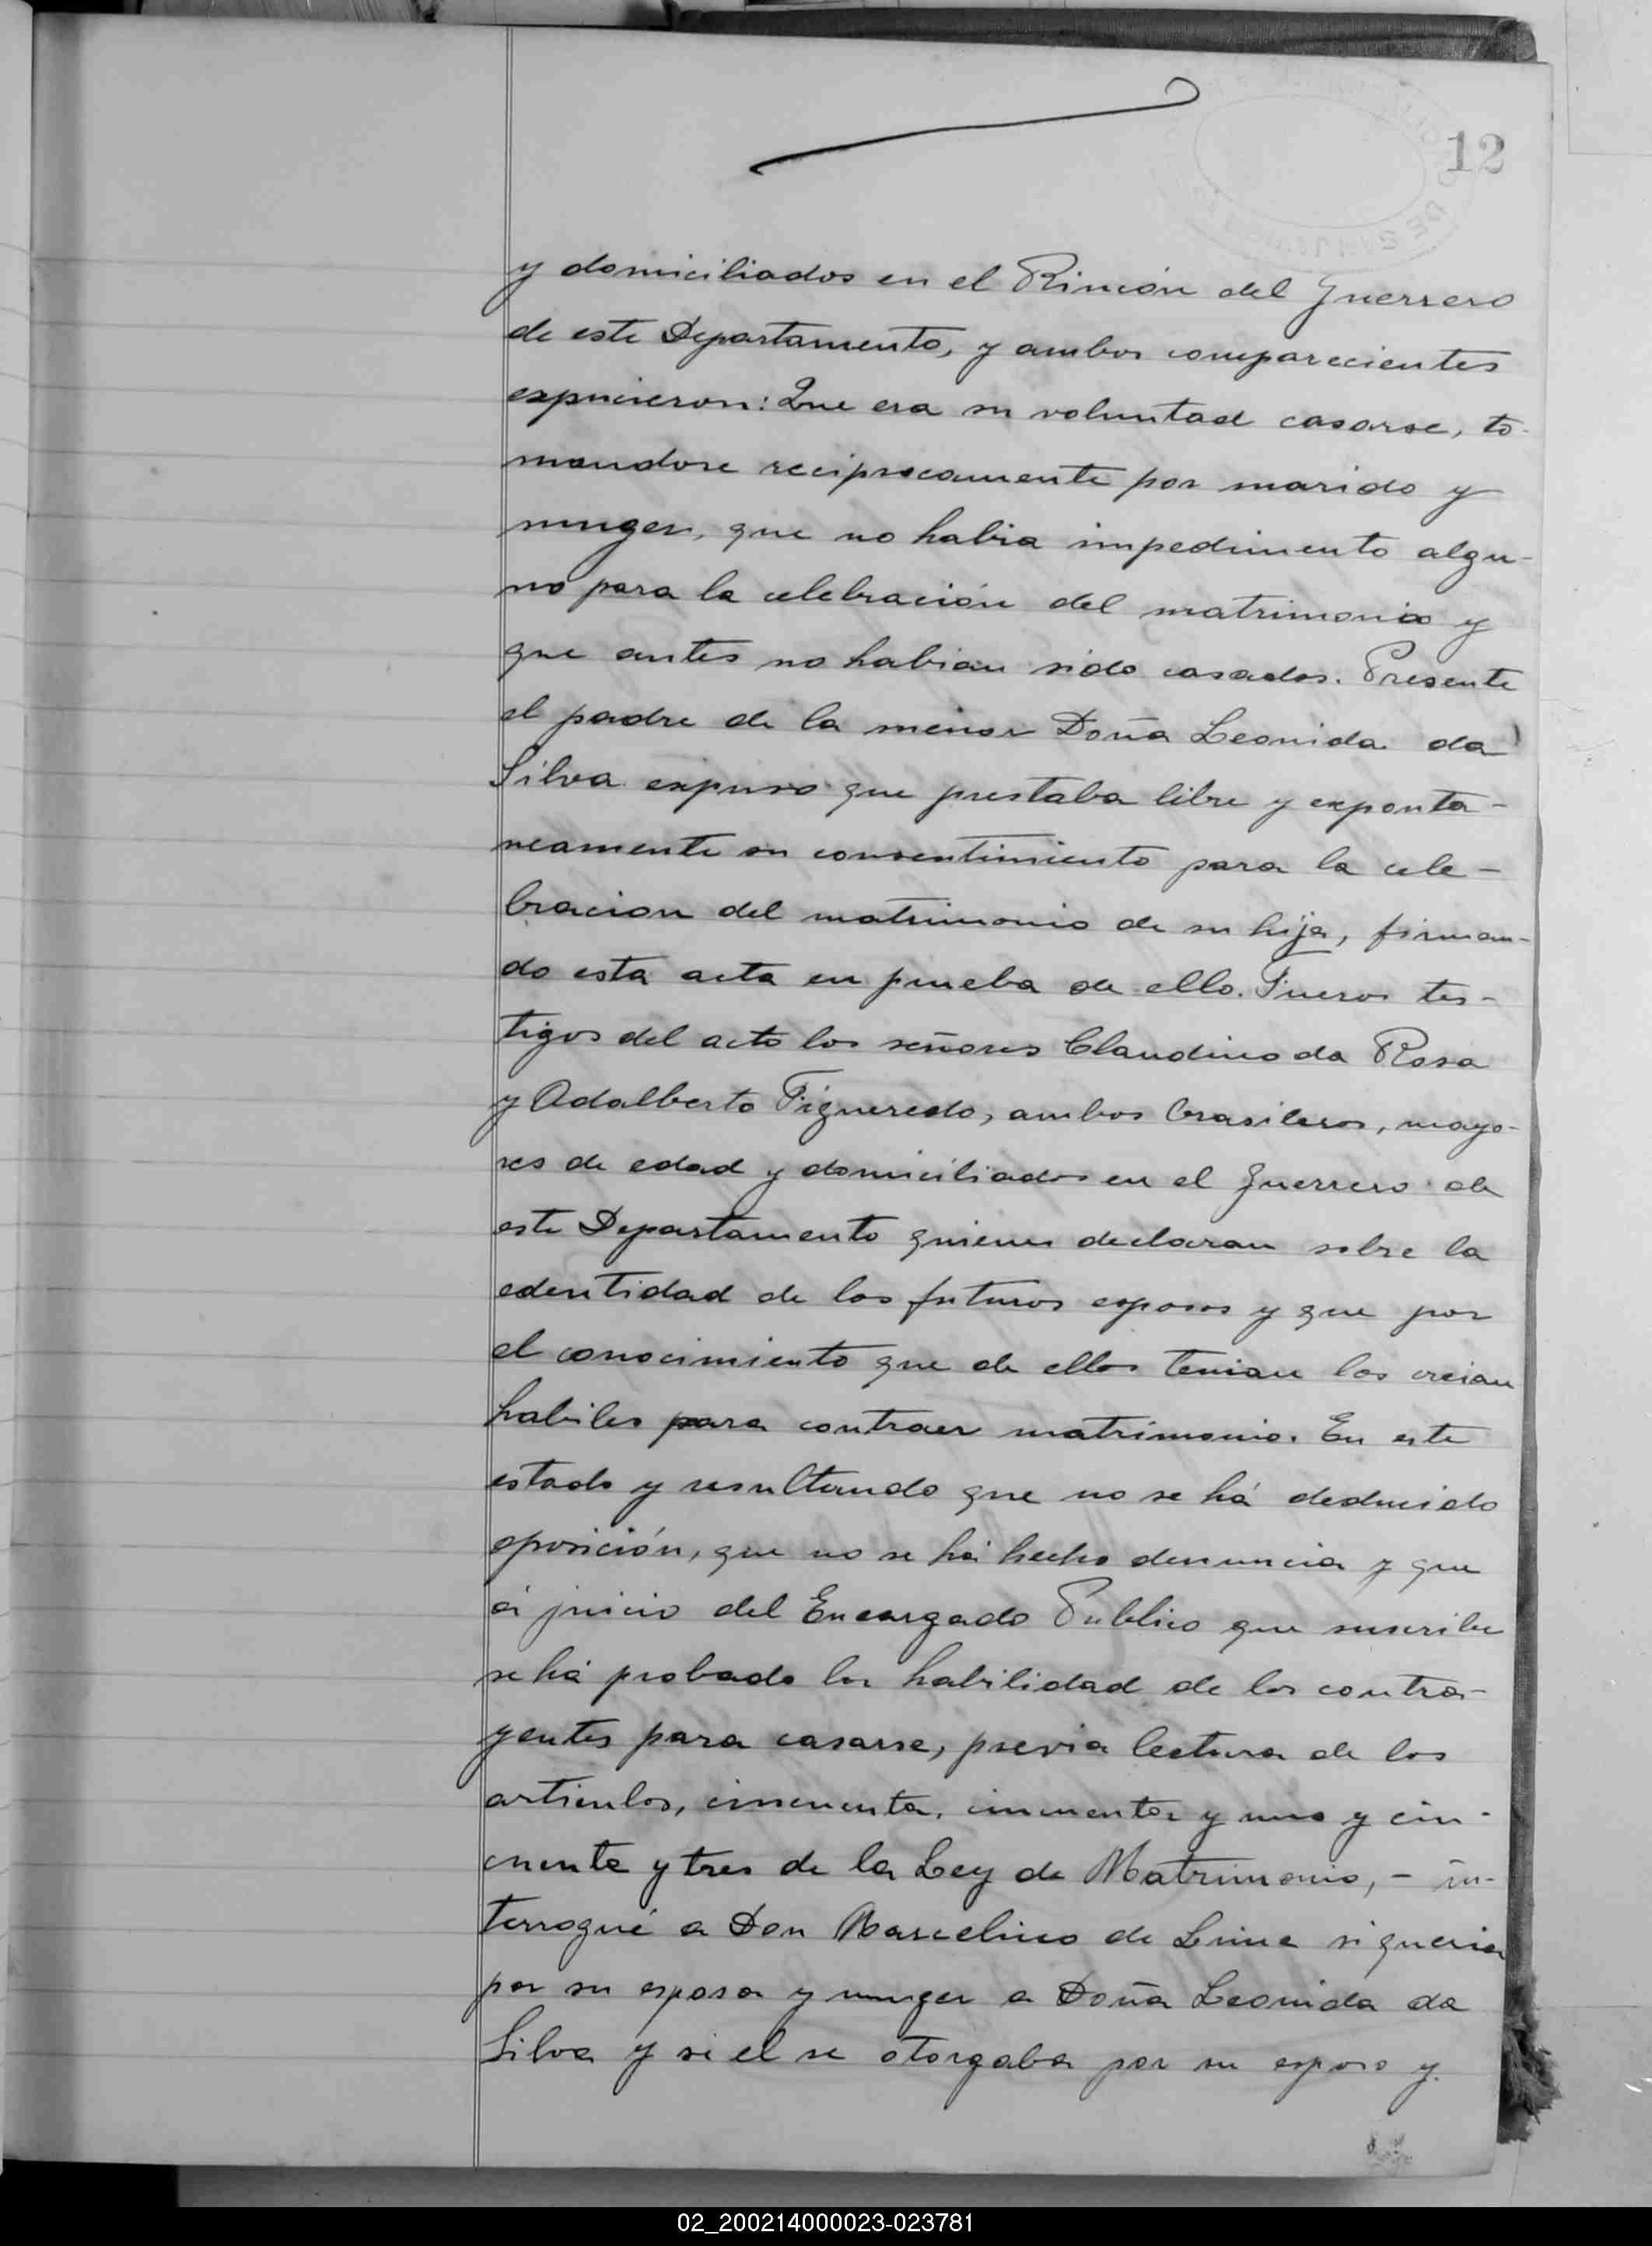 12
y domiciliados en el Rincón del Guerrero
de este Departamento, y ambos comparecientes
expucieron: Que era su voluntad casarse, to-
mandose reciprocamente por marido y
muger, que no habia impedimento algu-
no para la celebración del matrimonio y
que antes no habian sido casados. Presente
el padre de la menor Doña Leonida da
Silva expuso que prestaba libre y exponta-
neamente su consentimiento para la cele-
bracion del matrimonio de su hija, firman-
do esta acta en prueba de ello. Fueron tes-
tigos del acto los señores Claudino da Rosa
y Adalberto Figueredo, ambos brasileros, mayo-
res de edad y domiciliados en el Guerrero de
este Departamento quienes declaran sobre la
edentidad de los futuros esposos y que por
el conocimiento que de ellos tenian los creian
habiles para contraer matrimonio. En este
estado y resultando que no se há deducido
oposición, que no se há hecho denuncia y que
á juicio del Encargado Publico que suscribe
se há probado la habilidad de los contra-
yentes para casarse, previa lectura de los
articulos, cincuenta, cincuenta y uno y cin-
cuenta y tres de la Ley de Matrimonio, - in-
terrogué a Don Marcelino de Lima si queria
por su esposa y muger a Doña Leonida da
Silva y si el se otorgaba por su esposo y
02_200214000023-023781